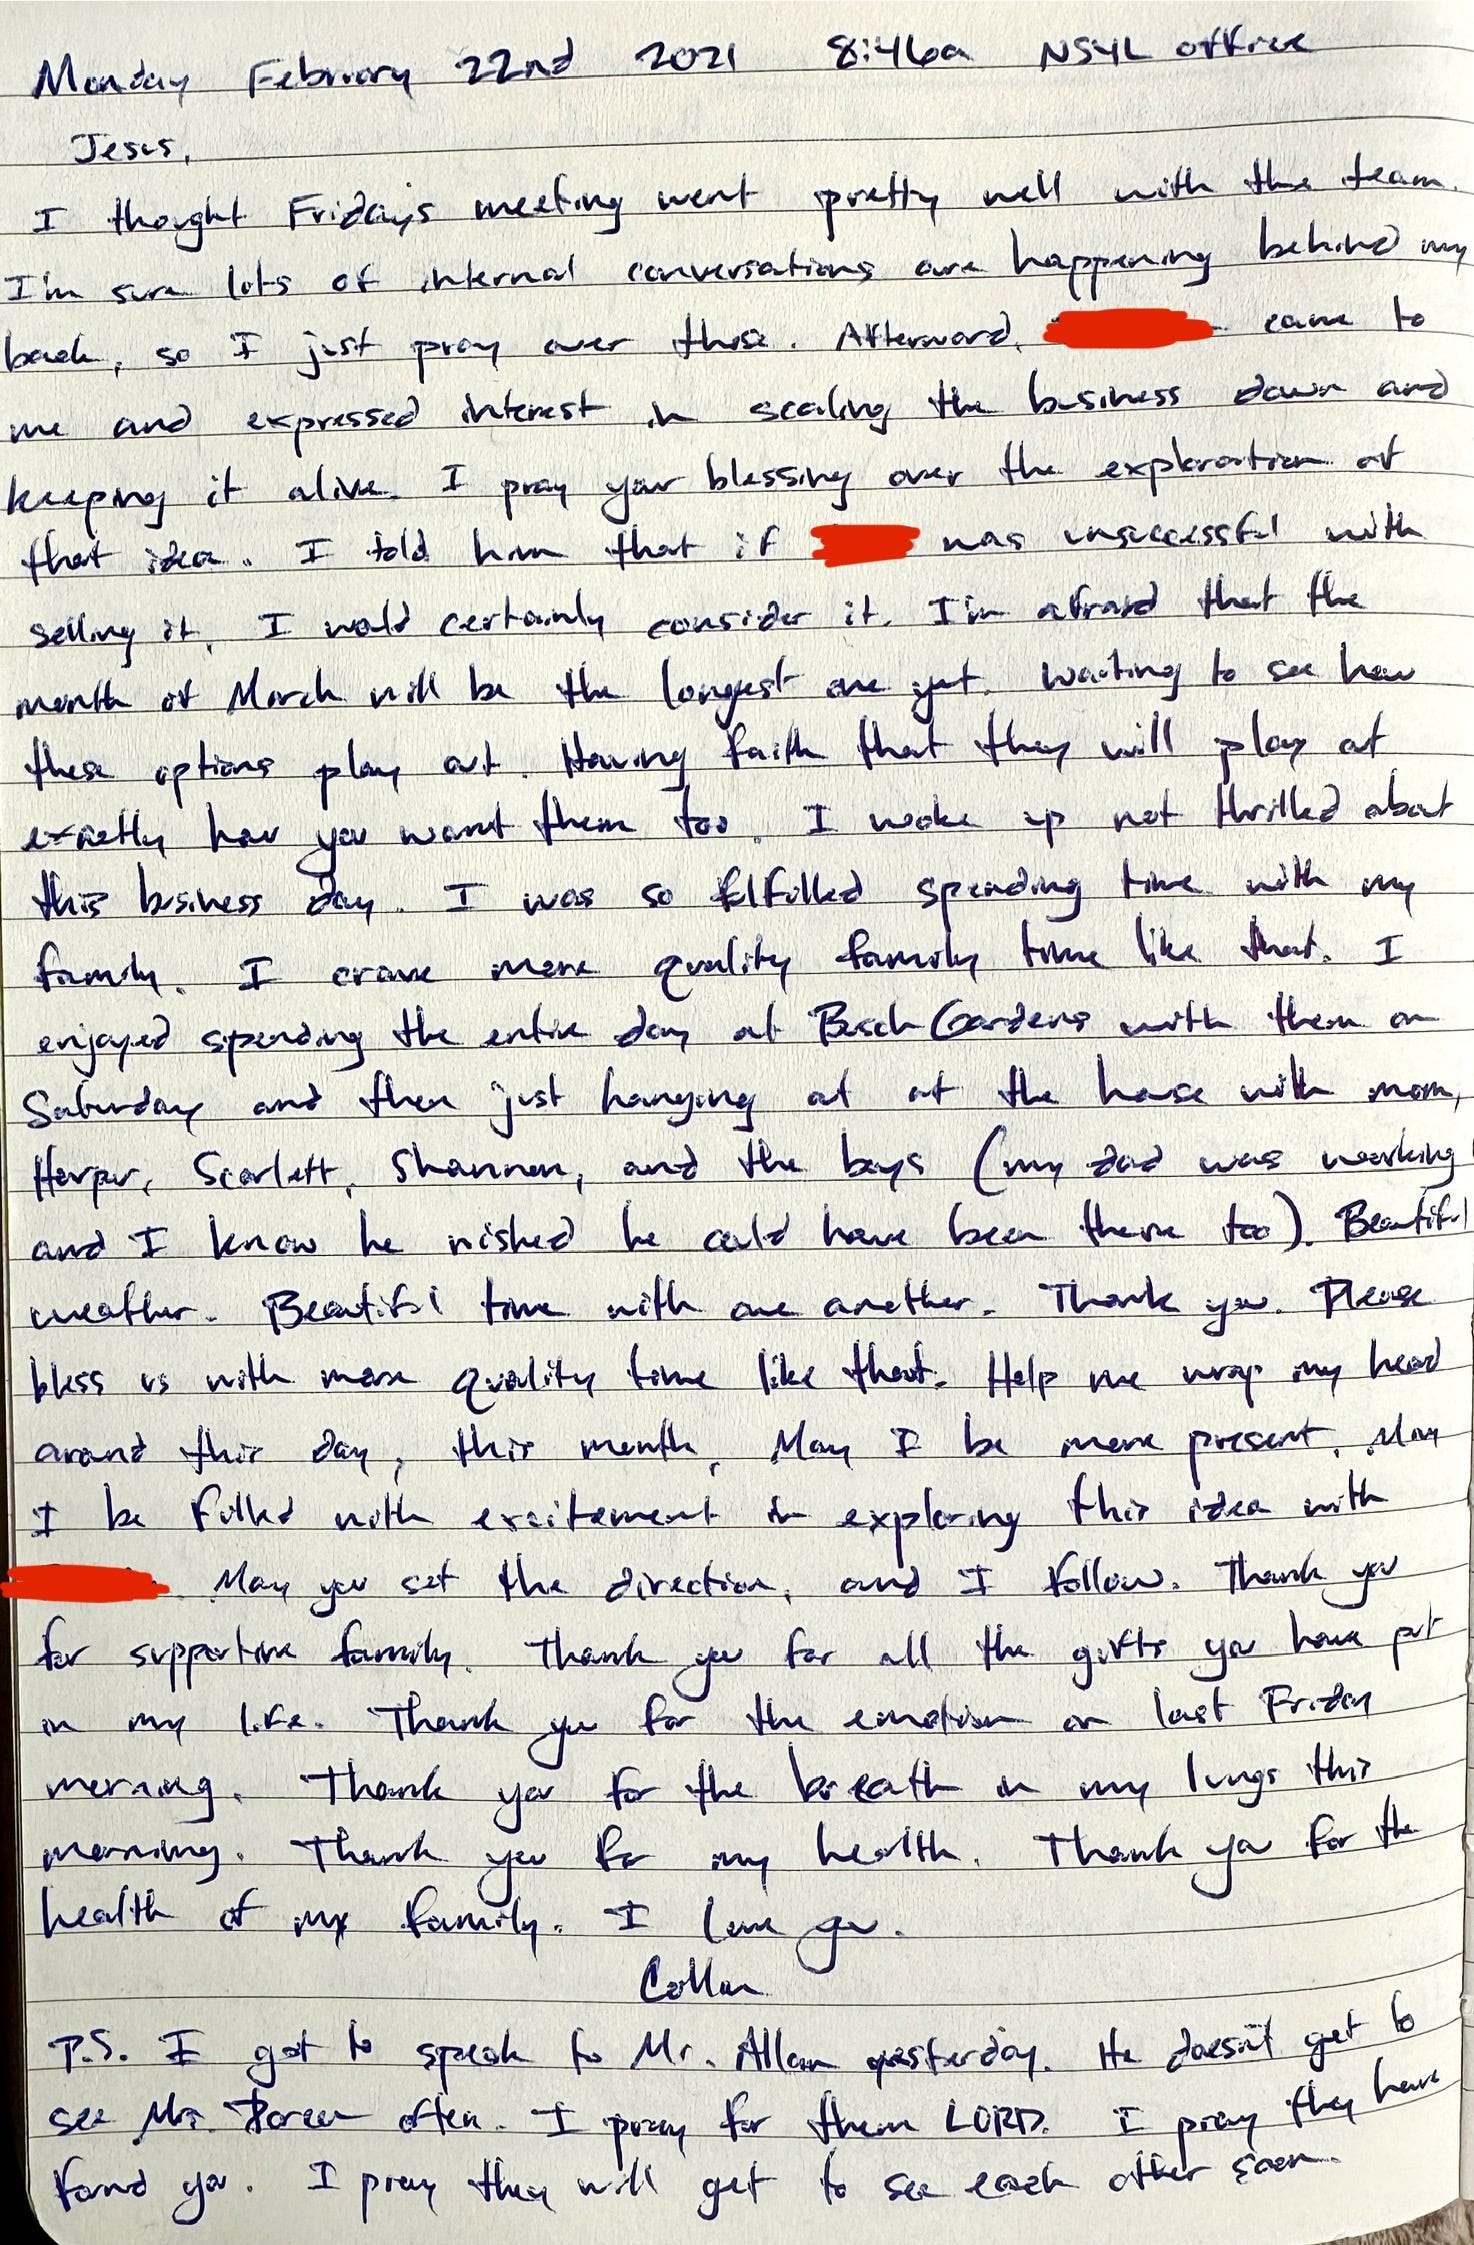 Monday February 22nd 2021 8:46a NSYL office
Jesus,
I thought Friday's meeting went pretty well with the team.
I'm sure lots of internal conversations are happening behind my
back, so I just pray over those. Afterward, came to
me and expressed interest in scaling the business down and
keeping it alive. I pray your blessing over the exploration of
that idea. I told him that if was unsuccessful with
selling it, I would certainly consider it. I'm afraid that the
month of March will be the longest one yet. Waiting to see how
these options play out. Having faith that they will play out
exactly how you want them too. I woke up not thrilled about
this business day. I was so fulfilled spending time with my
family. I crave more quality family time like that. I
enjoyed spending the entire day at Busch Gardens with them on
Saturday and then just hanging out at the house with mom,
Harper, Scarlett, Shannon, and the boys (my dad was working
and I know he wished he could have been there too). Beautiful
weather. Beautiful time with one another. Thank you. Please
bless us with more quality time like that. Help me wrap my head
around this day, this month, May I be more present. May
I be filled with excitement in exploring this idea with
. May you set the direction, and I follow. Thank you
for supportive family. Thank you for all the gifts you have put
in my life. Thank you for the emotion on last Friday
morning. Thank you for the breath in my lungs this
morning. Thank you for my health. Thank you for the
health of my family. I love you.
P.S. I got to speak to Mr. Allan yesterday. He doesn't get to
see Mrs. often. I pray for them LORD. I pray they have
found you. I pray they will get to see each other soon.